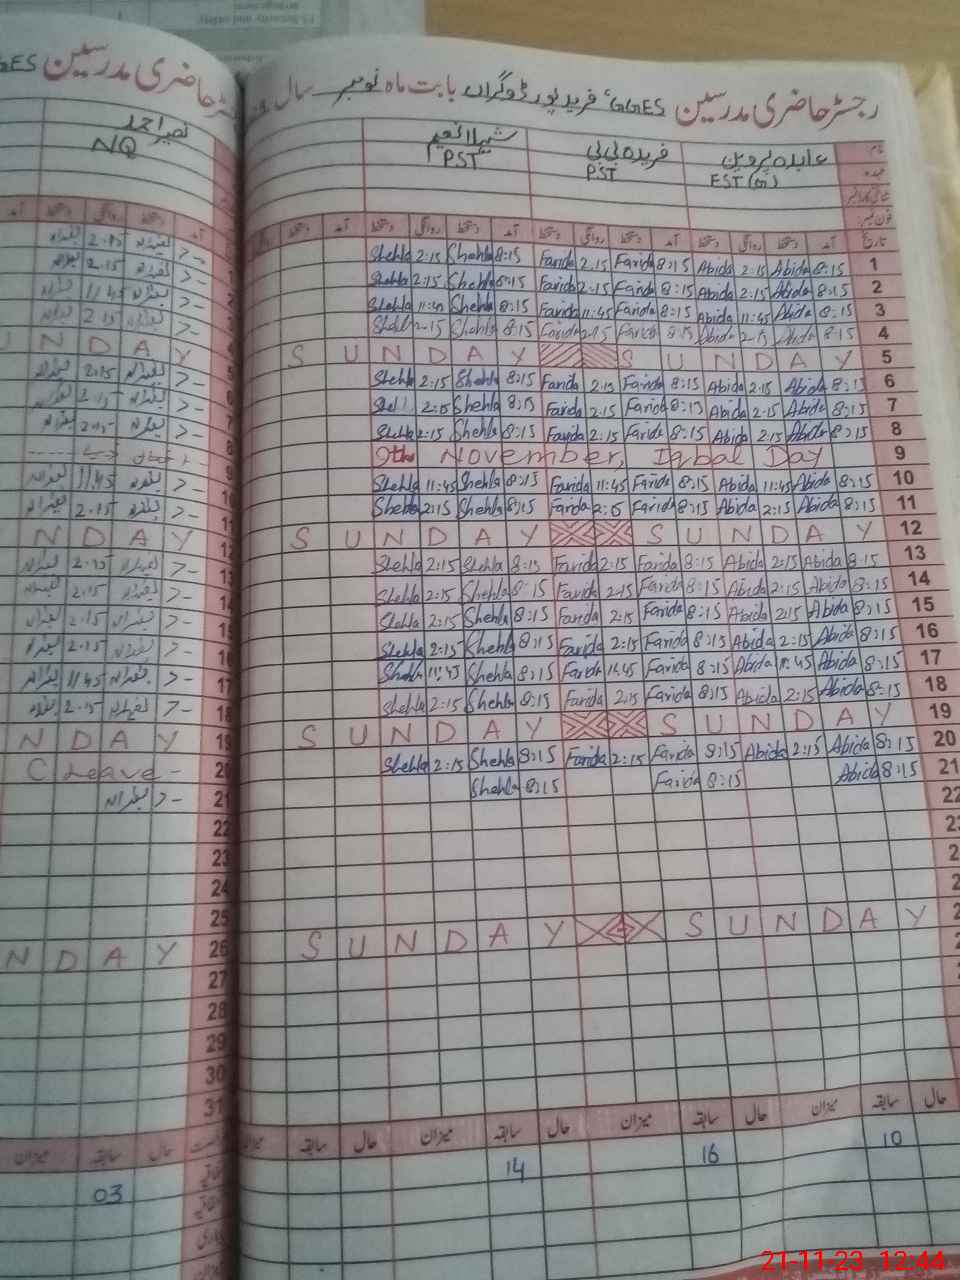 رجسٹر حاضری مدرسین GGES، فرید پور ڈوگراں بابت ماہ نومبر سال
نام عابدہ پروین فریدہ بی بی شہیلا نعیم
عہدہ EST (G) PST PST
تاریخ آمد دستخط روانگی دستخط آمد دستخط روانگی دستخط آمد دستخط روانگی دستخط آمد دستخط روانگی
Shehla 2:15 Shehla 8:15 Farida 2:15 Farida 8:15 Abida 2:15 Abida 8:15 1
Shehla 2:15 Shehla 8:15 Farida 2:15 Farida 8:15 Abida 2:15 Abida 8:15 2
Shehla 11:45 Shehla 8:15 Farida 11:45 Farida 8:15 Abida 11:45 Abida 8:15 3
Shehla 2:15 Shehla 8:15 Farida 2:15 Farida 8:15 Abida 2:15 Abida 8:15 4
S U N D A Y S U N D A Y 5
Shehla 2:15 Shehla 8:15 Farida 2:15 Farida 8:15 Abida 2:15 Abida 8:15 6
2:15 Shehla 8:15 Farida 2:15 Farida 8:15 Abida 2:15 Abida 8:15 7
Shehla 2:15 Shehla 8:15 Farida 2:15 Farida 8:15 Abida 2:15 Abida 8:15 8
9th November, Iqbal Day 9
Shehla 11:45 Shehla 8:15 Farida 11:45 Farida 8:15 Abida 11:45 Abida 8:15 10
Shehla 2:15 Shehla 8:15 Farida 2:15 Farida 8:15 Abida 2:15 Abida 8:15 11
S U N D A Y S U N D A Y 12
Shehla 2:15 Shehla 8:15 Farida 2:15 Farida 8:15 Abida 2:15 Abida 8:15 13
Shehla 2:15 Shehla 8:15 Farida 2:15 Farida 8:15 Abida 2:15 Abida 8:15 14
Shehla 2:15 Shehla 8:15 Farida 2:15 Farida 8:15 Abida 2:15 Abida 8:15 15
Shehla 2:15 Shehla 8:15 Farida 2:15 Farida 8:15 Abida 2:15 Abida 8:15 16
Shehla 11:45 Shehla 8:15 Farida 11:45 Farida 8:15 Abida 11:45 Abida 8:15 17
Shehla 2:15 Shehla 8:15 Farida 2:15 Farida 8:15 Abida 2:15 Abida 8:15 18
S U N D A Y S U N D A Y 19
Shehla 2:15 Shehla 8:15 Farida 2:15 Farida 8:15 Abida 2:15 Abida 8:15 20
Shehla 8:15 Farida 8:15 Abida 8:15 21
22
S U N D A Y S U N D A Y
حال سابقہ میزان حال سابقہ میزان حال سابقہ میزان حال سابقہ میزان
14 16 10
GES رجسٹر حاضری مدرسین
نصیر احمد
NQ
آمد دستخط روانگی دستخط آمد
2:15 1
2:15 2
11:45 3
2:15 4
N D A Y 5
2:15 6
2:15 7
2:15 8
9
11:45 10
2:15 11
N D A Y 12
2:15 13
2:15 14
2:15 15
2:15 16
11:45 17
2:15 18
N D A Y 19
C Leave - 20
21
22
23
24
25
N D A Y 26
27
28
29
30
31
حال سابقہ میزان
03
21-11-23 12:44